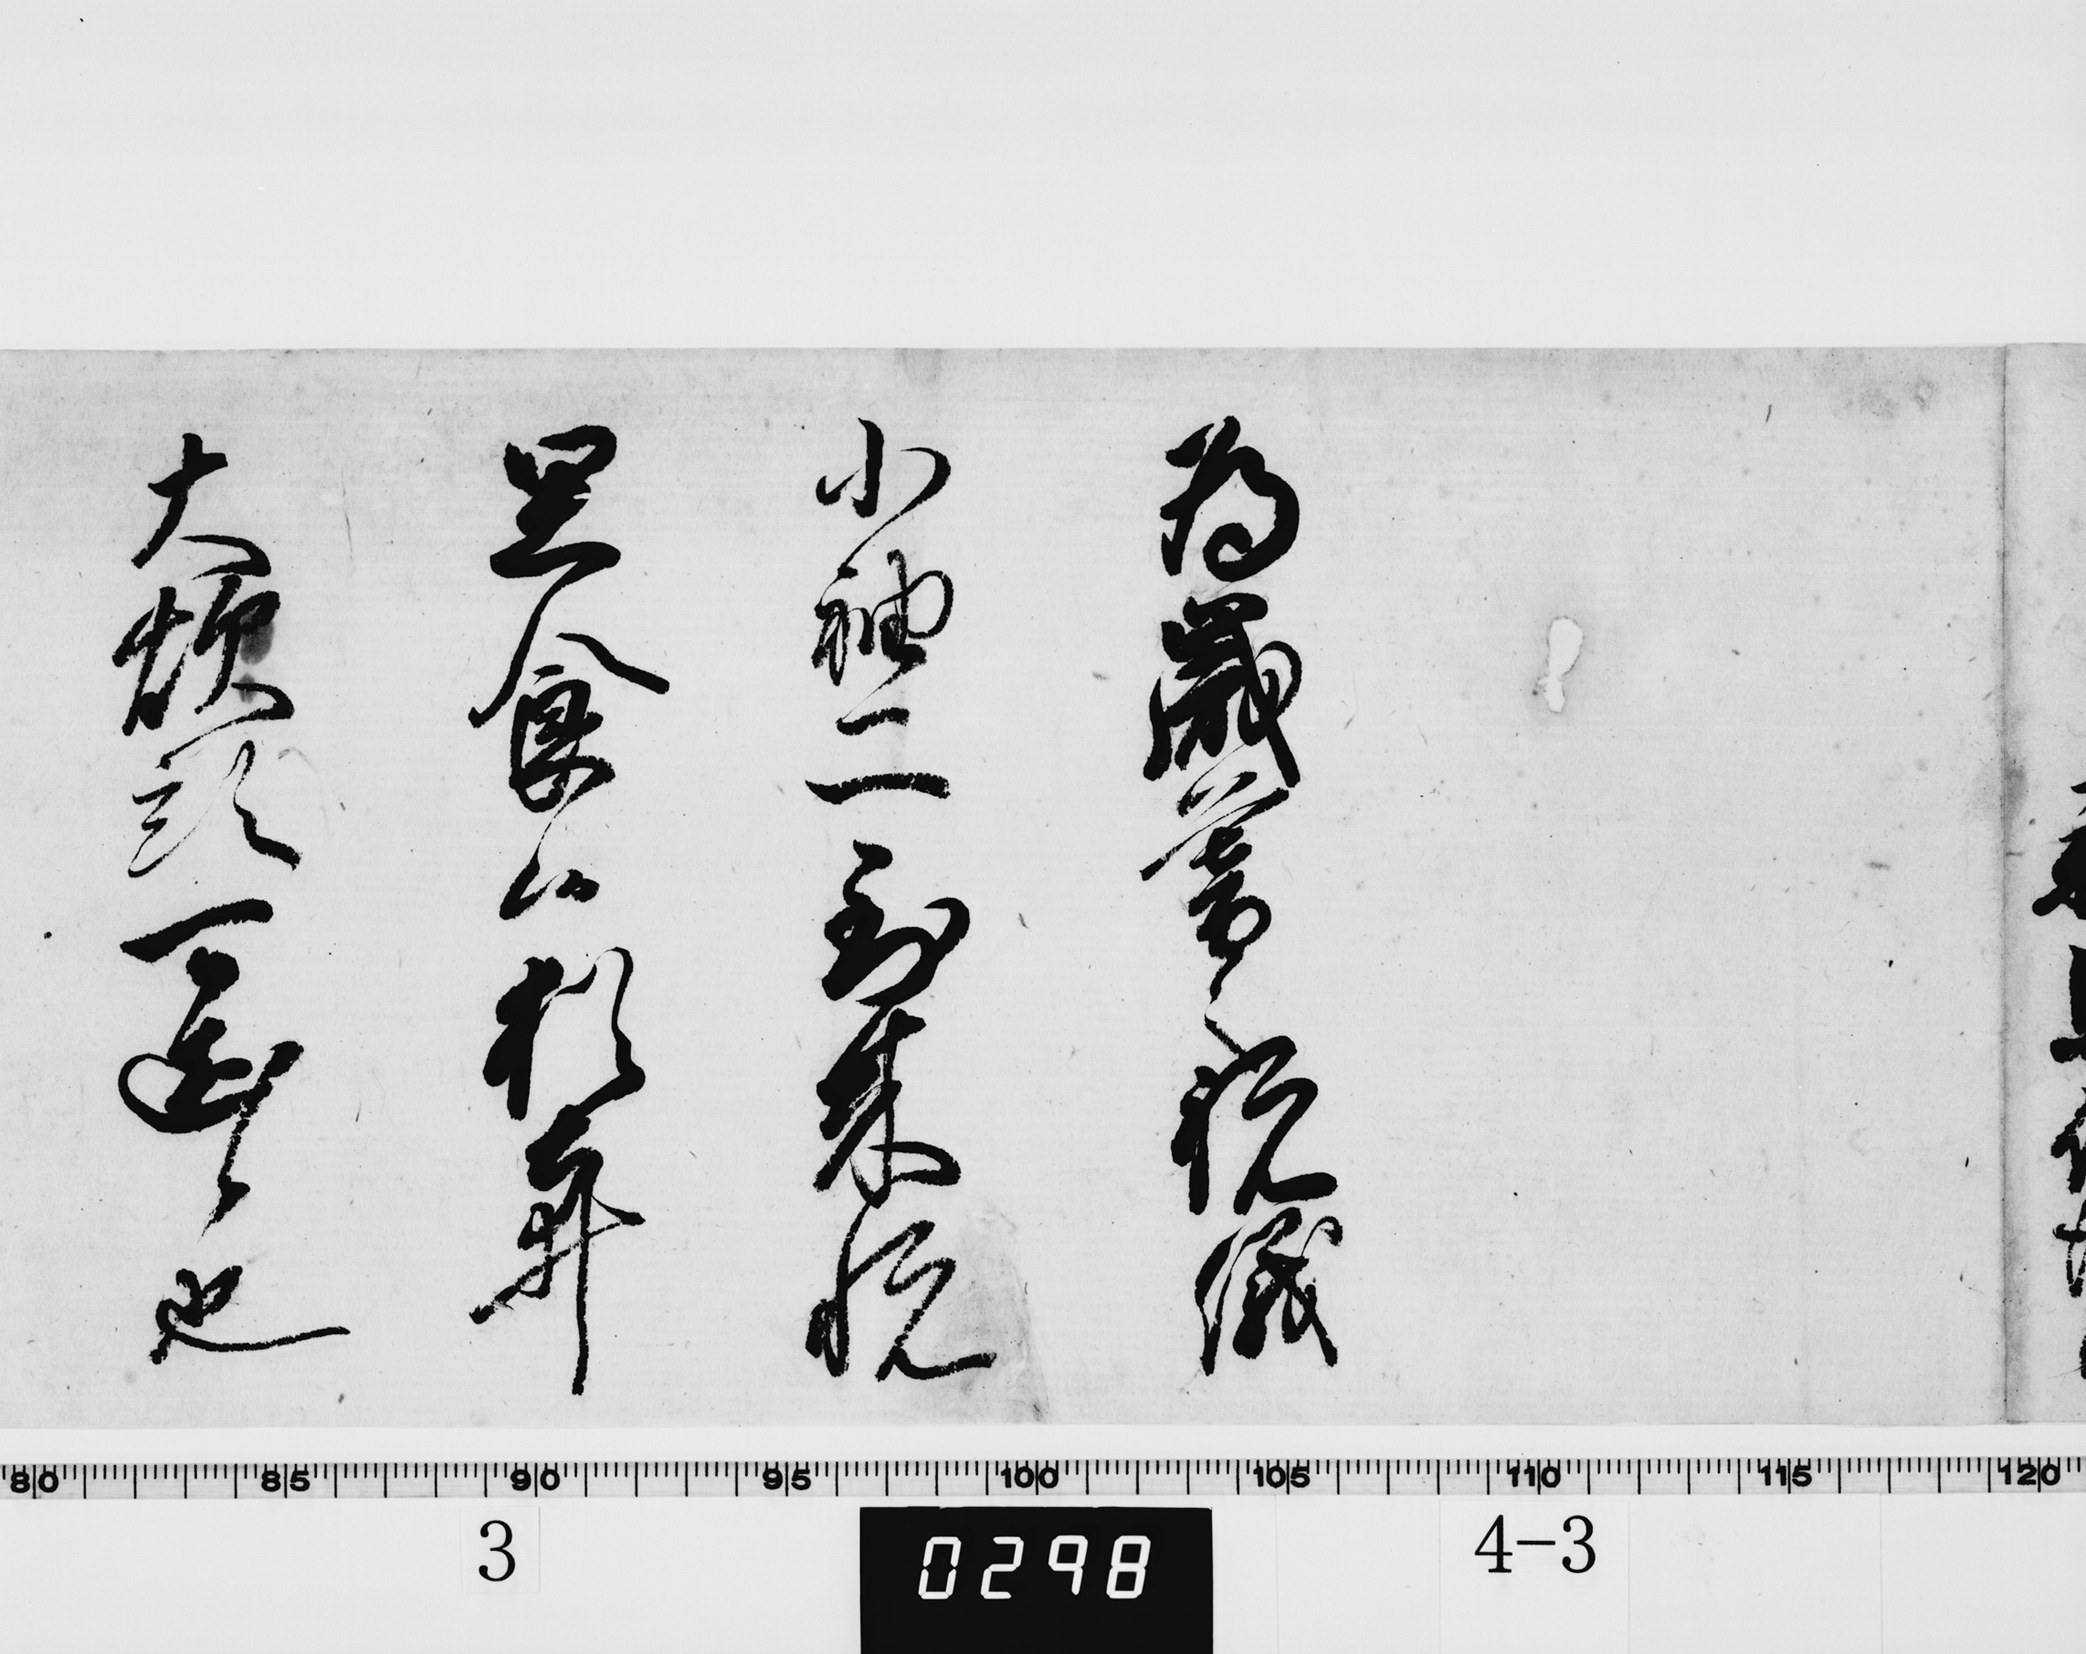 為歳暮之祝儀
小袖二到来悦
思食候猶
大炊頭可述也
80 85 90 95 100 105 110 115 120
3
0298
4-3